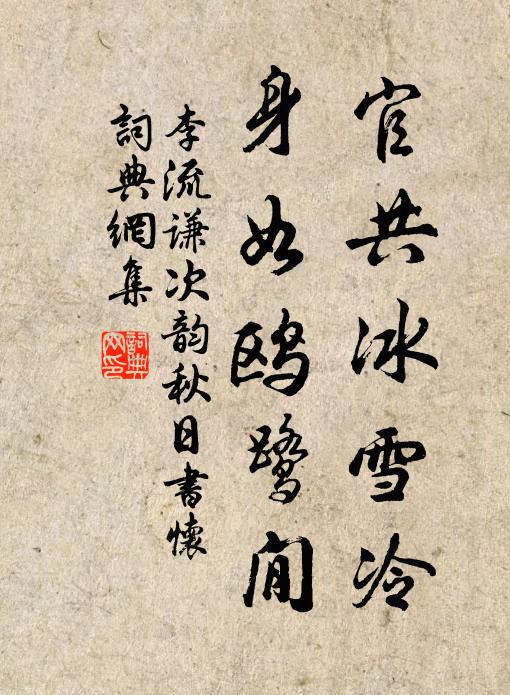 官共冰雪冷
身如鸥鹭闲
李流谦次韵秋日书怀
詞典網集
詞典网印